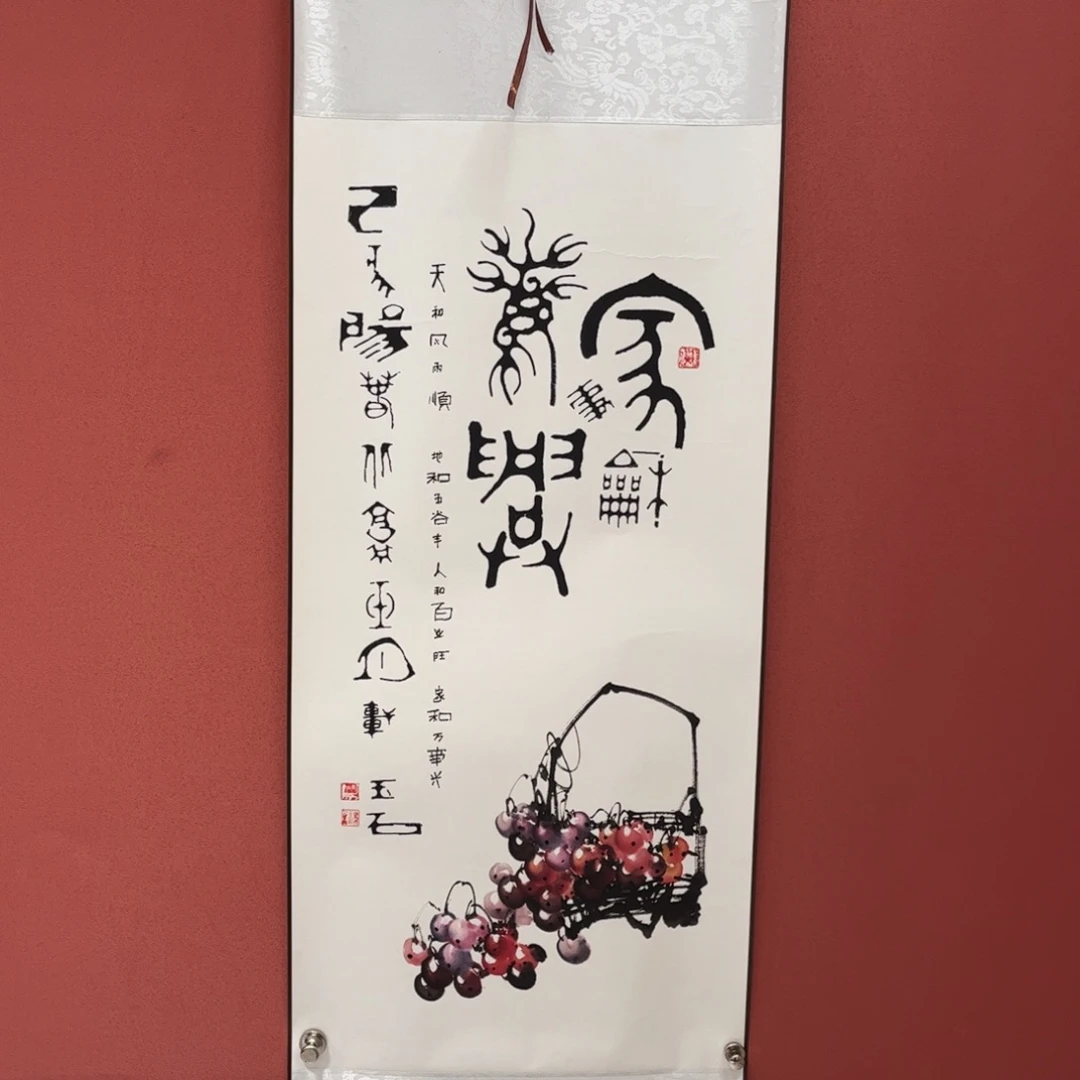 家龢萬事興
天和风雨順 地和五谷丰 人和百业旺 家和万事兴
己亥陽春北京軒 玉石